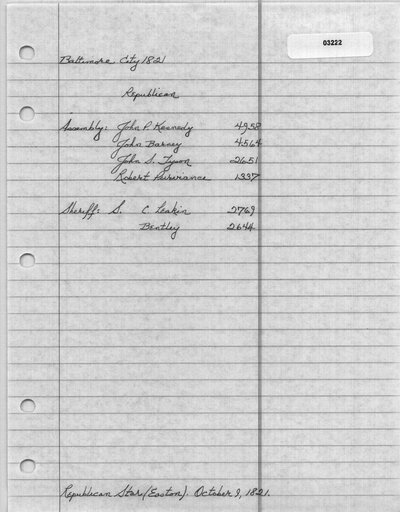 03222
Baltimore City 1821
Republican
Assembly: John P. Kennedy 4958
John Barney 4564
John S. Tyson 2651
Robert Purviance 1337
Sheriff: S. C. Leakin 2769
Bentley 2644
Republican Star (Easton). October 9, 1821.